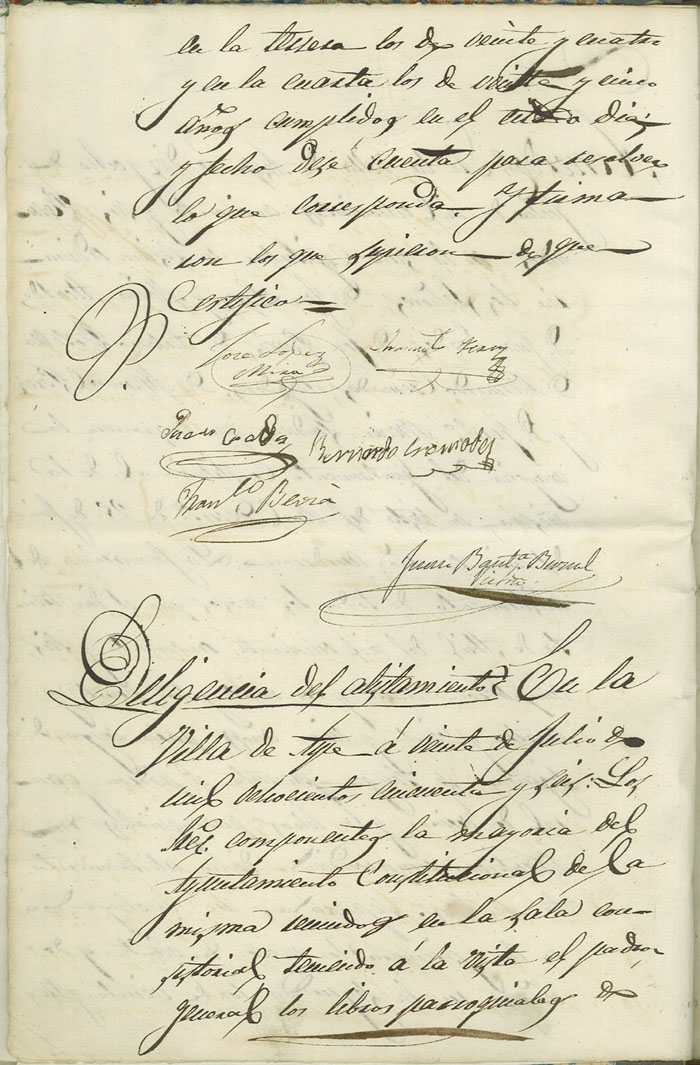 en la tersera los de veinte y cuatro
y en la cuarta los de veinte y cinco
años cumplidos en el dia
y fecho dese cuenta para resolver
lo que corresponda. Y firma
ron los que supieron de que
Certifico =
Jose Lopez
Mira
Manuel
Juan
Bernardo Cremades
Franco
Juan Bauta. Bernal
Deligencia del alistamiento En la
Villa de Aspe á veinte de Julio de
mil ochocientos cincuenta y seis: Los
Sres. componentes la mayoria del
Ayuntamiento Constitucional de la
misma reunidos en la sala con-
sistorial teniendo á la vista el padron
general los libros parroquiales de